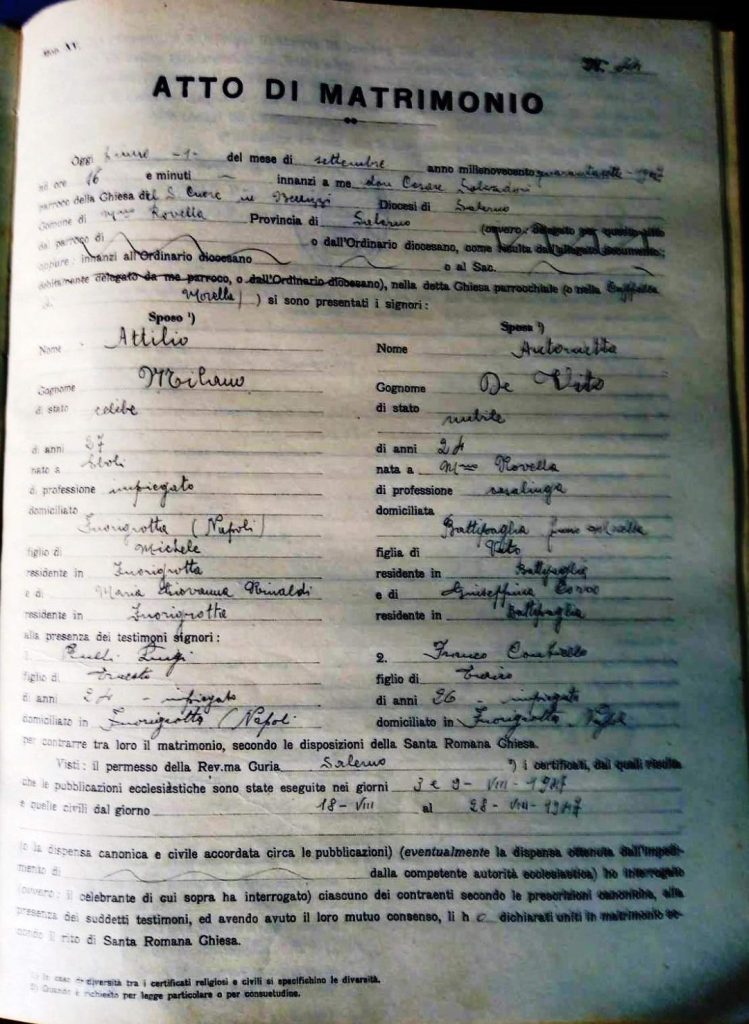 Mod. XV.
N.
ATTO DI MATRIMONIO
Oggi lunedì -1- del mese di settembre anno millenovecento
ad ore 16 e minuti — innanzi a me don Cesare
parroco della Chiesa del S. Cuore in Diocesi di Salerno
Comune di M.no Rovella Provincia di Salerno (ovvero: delegato per questo atto
dal parroco di o dall'Ordinario diocesano, come risulta dall'allegato documento;
oppure: innanzi all'Ordinario diocesano o al Sac.
debitamente delegato da me parroco, o dall'Ordinario diocesano), nella detta Chiesa parrocchiale (o nella Cappella
Morella) ) si sono presentati i signori:
Sposo ¹)
Sposa ¹)
Nome Attilio
Nome Antonietta
Cognome Milano
Cognome De Vito
di stato celibe
di stato nubile
di anni 27
di anni 24
nato a Eboli
nata a M.no Rovella
di professione impiegato
di professione casalinga
domiciliato
domiciliata
Fuorigrotta (Napoli)
Battipaglia
figlio di Michele
figlia di Vito
residente in Fuorigrotta
residente in Battipaglia
e di Maria Giovanna Rinaldi
e di Giuseppina
residente in Fuorigrotta
residente in Battipaglia
alla presenza dei testimoni signori:
1. Luigi
2. Franco
figlio di Ernesto
figlio di
di anni 24 - impiegato
di anni 26 - impiegato
domiciliato in Fuorigrotta (Napoli)
domiciliato in Fuorigrotta - Napoli
per contrarre tra loro il matrimonio, secondo le disposizioni della Santa Romana Chiesa.
Visti: il permesso della Rev.ma Curia Salerno ²) i certificati, dai quali risulta
che le pubblicazioni ecclesiastiche sono state eseguite nei giorni 3 e 9 - VIII - 1947
e quelle civili dal giorno 18 - VIII al 28 - VIII - 1947
(o la dispensa canonica e civile accordata circa le pubblicazioni) (eventualmente la dispensa ottenuta dall'impedi-
mento di dalla competente autorità ecclesiastica) ho interrogato
(ovvero: il celebrante di cui sopra ha interrogato) ciascuno dei contraenti secondo le prescrizioni canoniche, alla
presenza dei suddetti testimoni, ed avendo avuto il loro mutuo consenso, li h o dichiarati uniti in matrimonio se-
condo il rito di Santa Romana Chiesa.
1) In caso di diversità tra i certificati religiosi e civili si specifichino le diversità.
2) Quando è richiesto per legge particolare o per consuetudine.